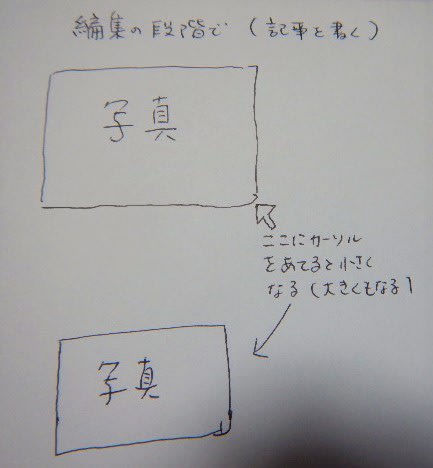 編集の段階で (記事を書く)
写真
ここにカーソル
をあてると小さく
なる (大きくもなる)
写真